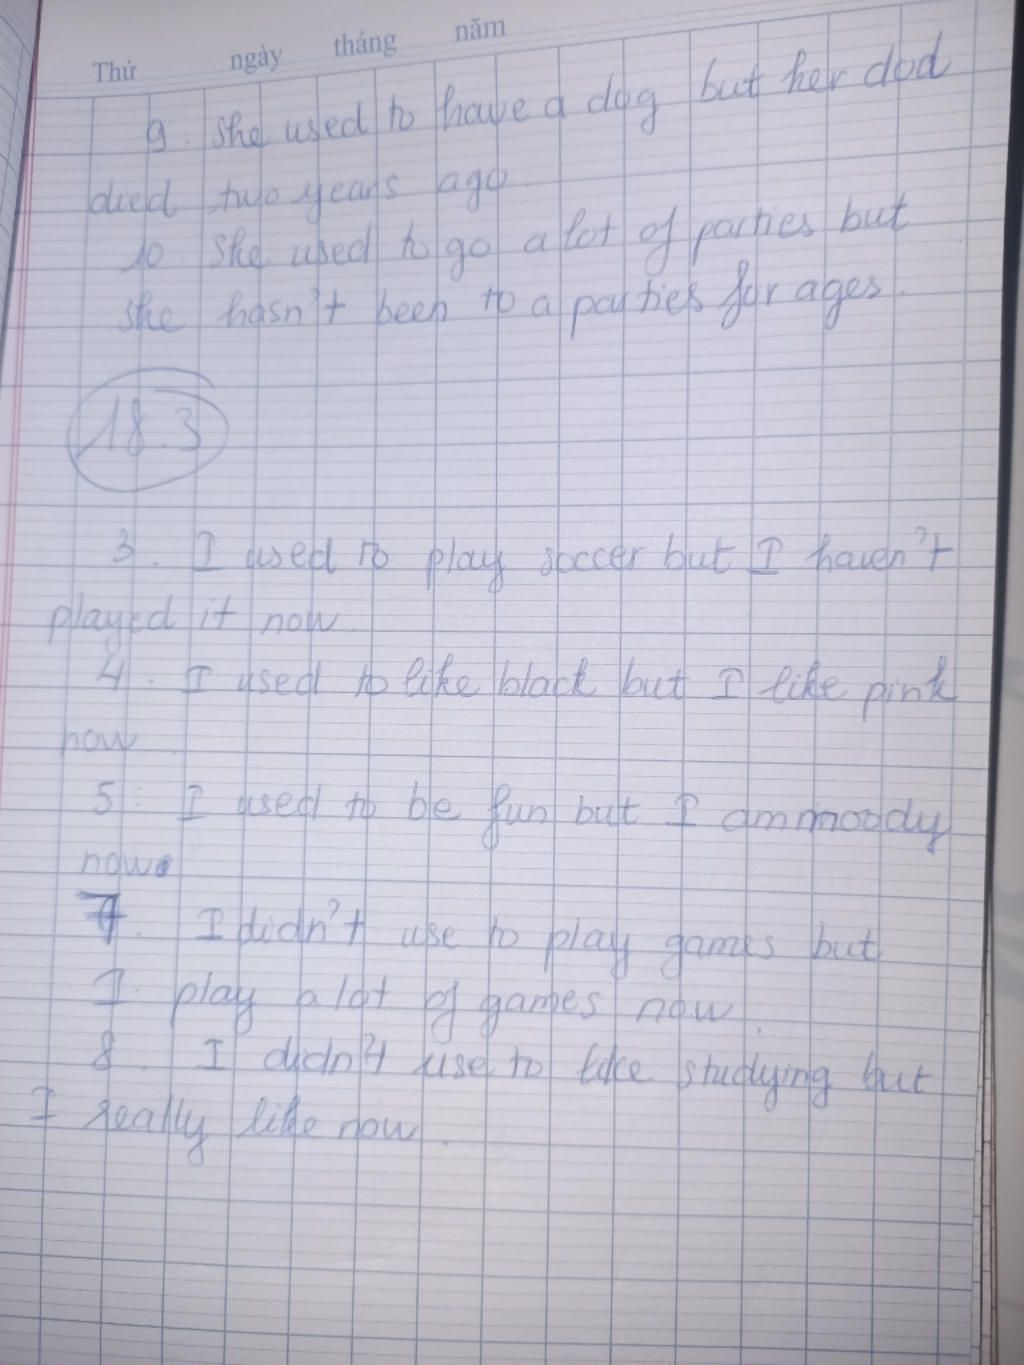 Thứ ngày tháng năm
9. She used to have a dog but her dod
died two years ago
10. She used to go a lot of parties but
she hasn't been to a parties for ages.
18.3
3. I used to play soccer but I haven't
played it now.
4. I used to like black but I like pink
now
5. I used to be fun but I am moody
now.
7. I didn't use to play games but
I play a lot of games now.
8. I didn't use to like studying but
I really like now.